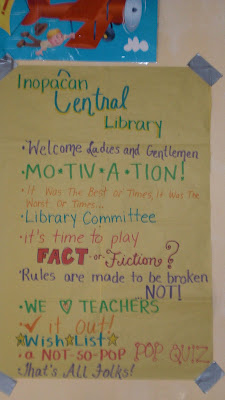 Inopacan
Central
Library
• Welcome Ladies and Gentlemen
• MO•TIV•A•TION!
• It Was The Best Of Times, It Was The
Worst Of Times...
• Library Committee
• it's time to play
FACT or Fiction?
• Rules are made to be broken
NOT!
• WE ♡ TEACHERS
✓ it out!
★Wish★List★
• a NOT-SO-POP POP QUIZ
• That's All Folks!